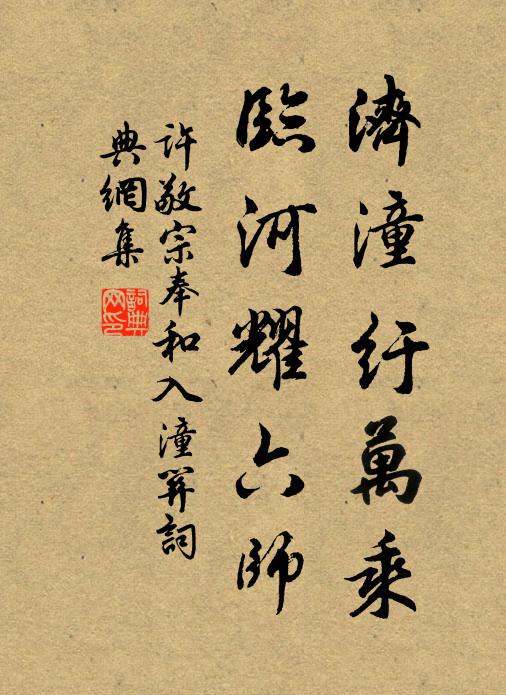 濟潼紆萬乘
臨河耀六師
許敬宗奉和入潼關詞
典網集
詞典網印